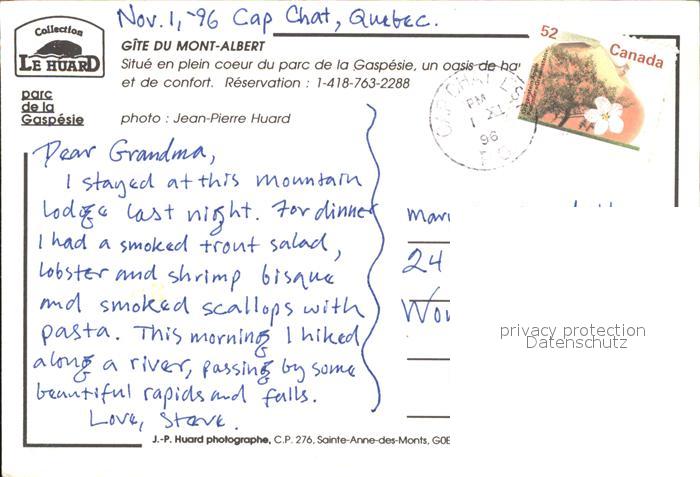 Nov. 1, '96 Cap Chat, Quebec.
Collection
LE HUARD
GÎTE DU MONT-ALBERT
Situé en plein coeur du parc de la Gaspésie, un oasis de
et de confort. Réservation : 1-418-763-2288
parc
de la
Gaspésie
photo : Jean-Pierre Huard
52 Canada
CAP CHAT
PM
1 XI
96
P Q
Dear Grandma,
I stayed at this mountain
lodge last night. For dinner
I had a smoked trout salad,
lobster and shrimp bisque
and smoked scallops with
pasta. This morning I hiked
along a river, passing by some
beautiful rapids and falls.
Love, Steve.
24
privacy protection
Datenschutz
J.-P. Huard photographe, C.P. 276, Sainte-Anne-des-Monts, G0E